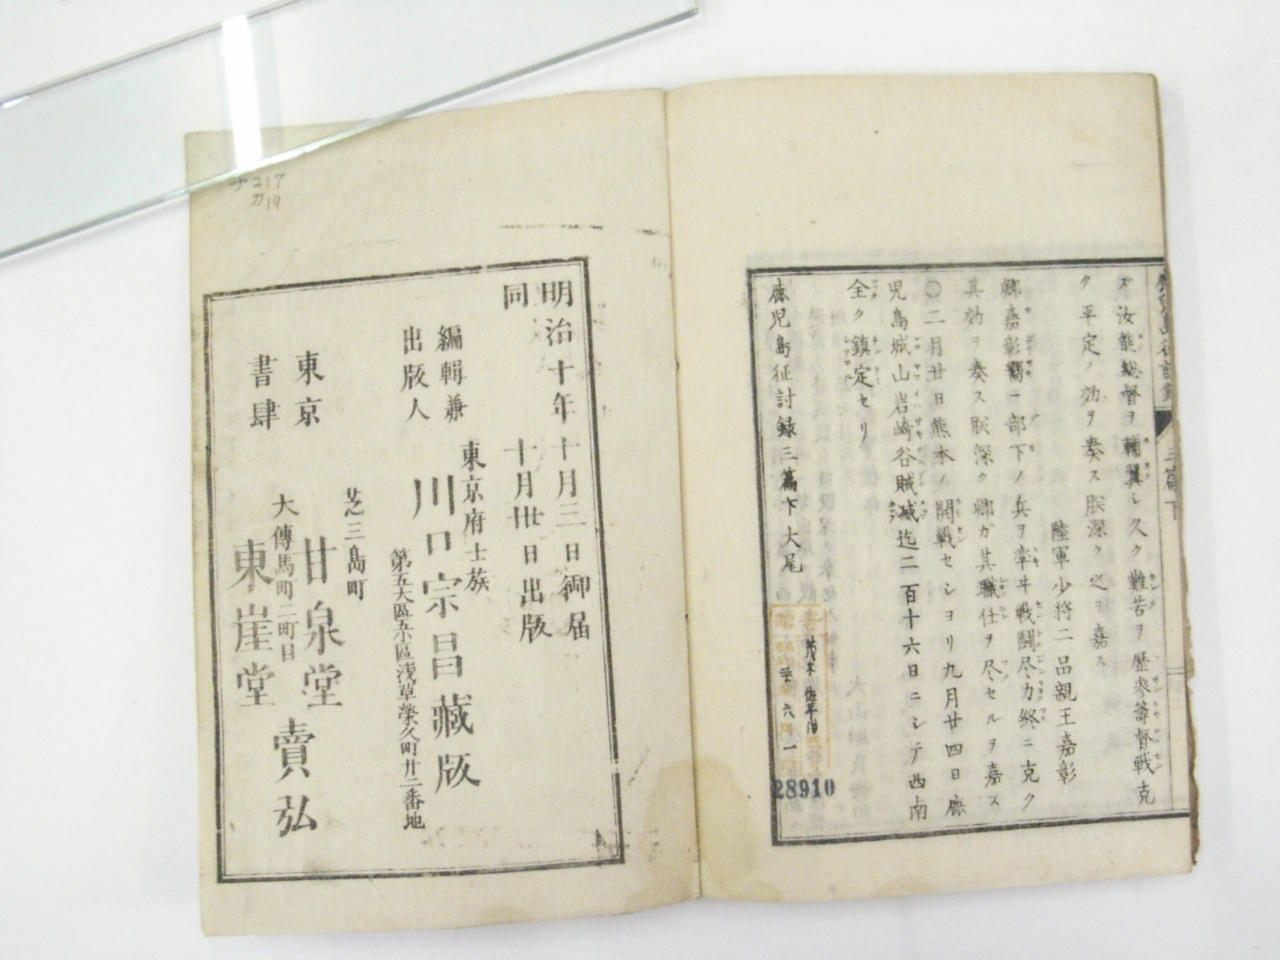 鹿児島征討録 三篇下
ズ汝能総督ヲ輔翼シ久ク難苦ヲ歴参籌督戦克
ク平定ノ効ヲ奏ス朕深ク之ヲ嘉ス
陸軍少将二品親王嘉彰
卿嘉彰曩ニ一部下ノ兵ヲ率ヰ戦闘尽力終ニ克ク
其効ヲ奏ス朕深ク卿ガ其職任ヲ尽セルヲ嘉ス
〇二月廿日熊本ノ開戦セシヨリ九月廿四日鹿
児島城山岩崎谷賊滅迄二百十六日ニシテ西南
全ク鎮定セリ
鹿児島征討録三篇下大尾
28910
217
カ19
明治十年十月三日御届
同 十月卅日出版
編輯兼
出版人
東京府士族
川口宗昌藏版
第五大區五小區浅草榮久町廿二番地
東京
書肆
芝三島町
甘泉堂
大傳馬町二町目
東崖堂
賣弘